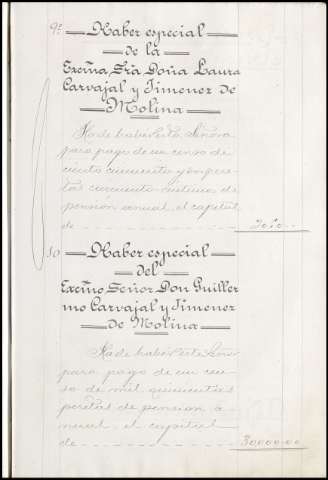 9º Haber especial
de la
Excma. Sra. Doña Laura
Carvajal y Jimenez de
Molina
Ha de haber esta Señora
para pago de un censo de
ciento cincuenta y
pension annual, el capital
de
10 Haber especial
del
Excmo. Señor Don Guiller
mo Carvajal y Jimenez
de Molina
Ha de haber este Señor
para pago de un cen
so de mil quinientas
pesetas de pension a
nnual, el capital
de 30000.00